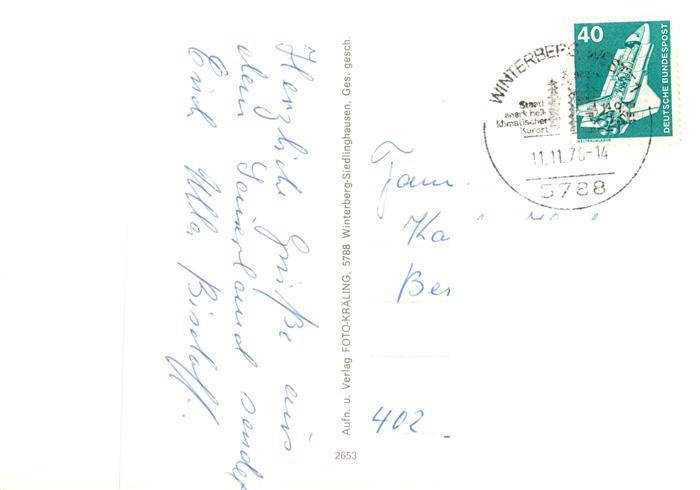 Herzliche Grüße aus
dem Sauerland senden
Erich Ulla Bischoff.
Aufn. u. Verlag FOTO-KRÄLING, 5788 Winterberg-Siedlinghausen. Ges. gesch.
2653
40
DEUTSCHE BUNDESPOST
WELTRAUMLABOR
WINTERBERG
Staatl
anerk. heil-
klimatischer
Kurort
11.11.76-14
5788
Fam.
Ka
Bes
402